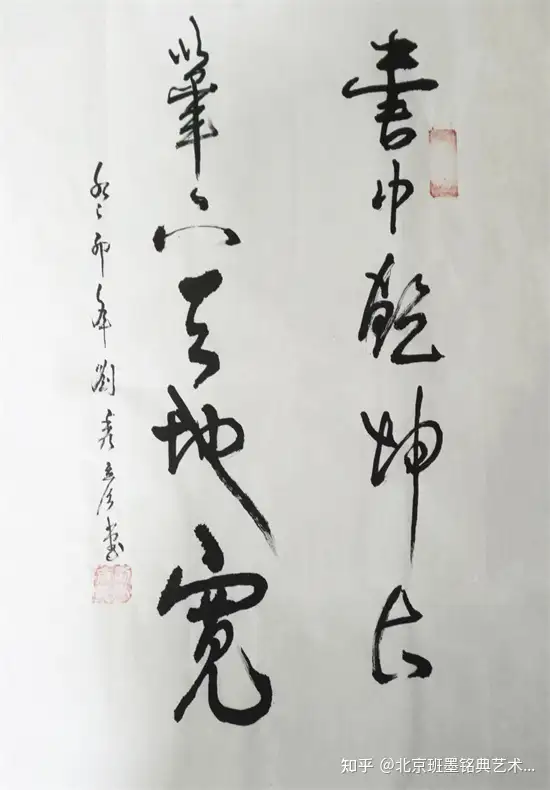 書中乾坤大
筆下天地寬
癸卯年劉書
知乎 @北京班墨铭典艺术...